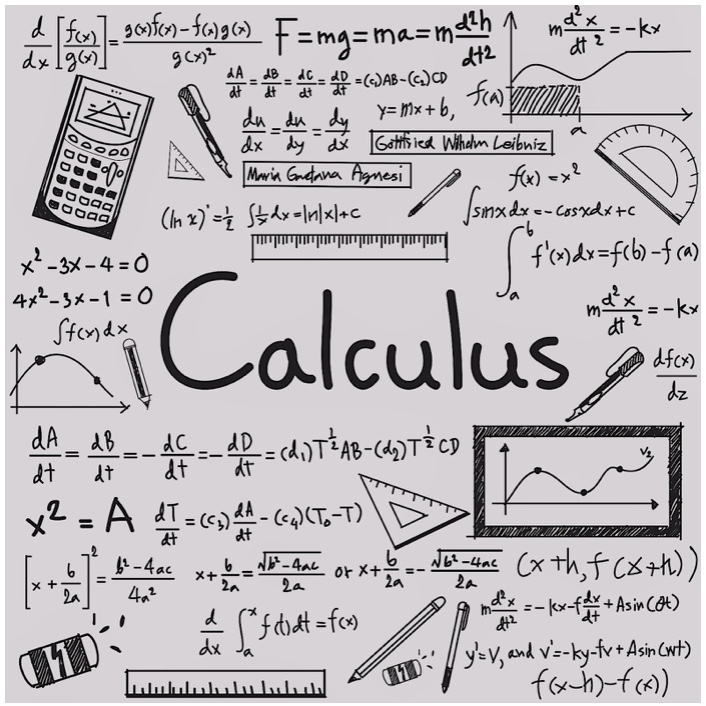 d/dx [f(x)/g(x)] = g(x)f(x) - f(x)g(x) / g(x)²
F = mg = ma = m d²h/dt²
m d²x/dt² = -kx
dA/dt = dB/dt = dC/dt = dD/dt = (c₁)AB-(c₂)CD
f(a)
a
du/dx = du/dy = dy/dx
y = mx + b,
Gottfried Wilhelm Leibniz
Maria Gaetana Agnesi
f(x) = x²
(ln x)' = 1/2
∫1/x dx = ln|x|+c
∫sinx dx = -cosxdx+c
∫ₐᵇ f'(x)dx = f(b) - f(a)
x² - 3x - 4 = 0
4x² - 3x - 1 = 0
m d²x/dt² = -kx
∫f(x)dx
Calculus
df(x)/dz
dA/dt = dB/dt = - dC/dt = - dD/dt = (d₁)T^½ AB-(d₂)T^½ CD
V₂
x² = A
dT/dt = (c₃) dA/dt - (c₄)(T₀-T)
[x + b/2a]² = b²-4ac / 4a²
x + b/2a = √b²-4ac / 2a or x + b/2a = - √b²-4ac / 2a
(x+h, f(x+h))
m d²x/dt² = -kx-f dx/dt + Asin(θt)
d/dx ∫ₐˣ f(t)dt = f(x)
y' = V, and v' = -ky-fv + Asin(wt)
f(x-h)-f(x))